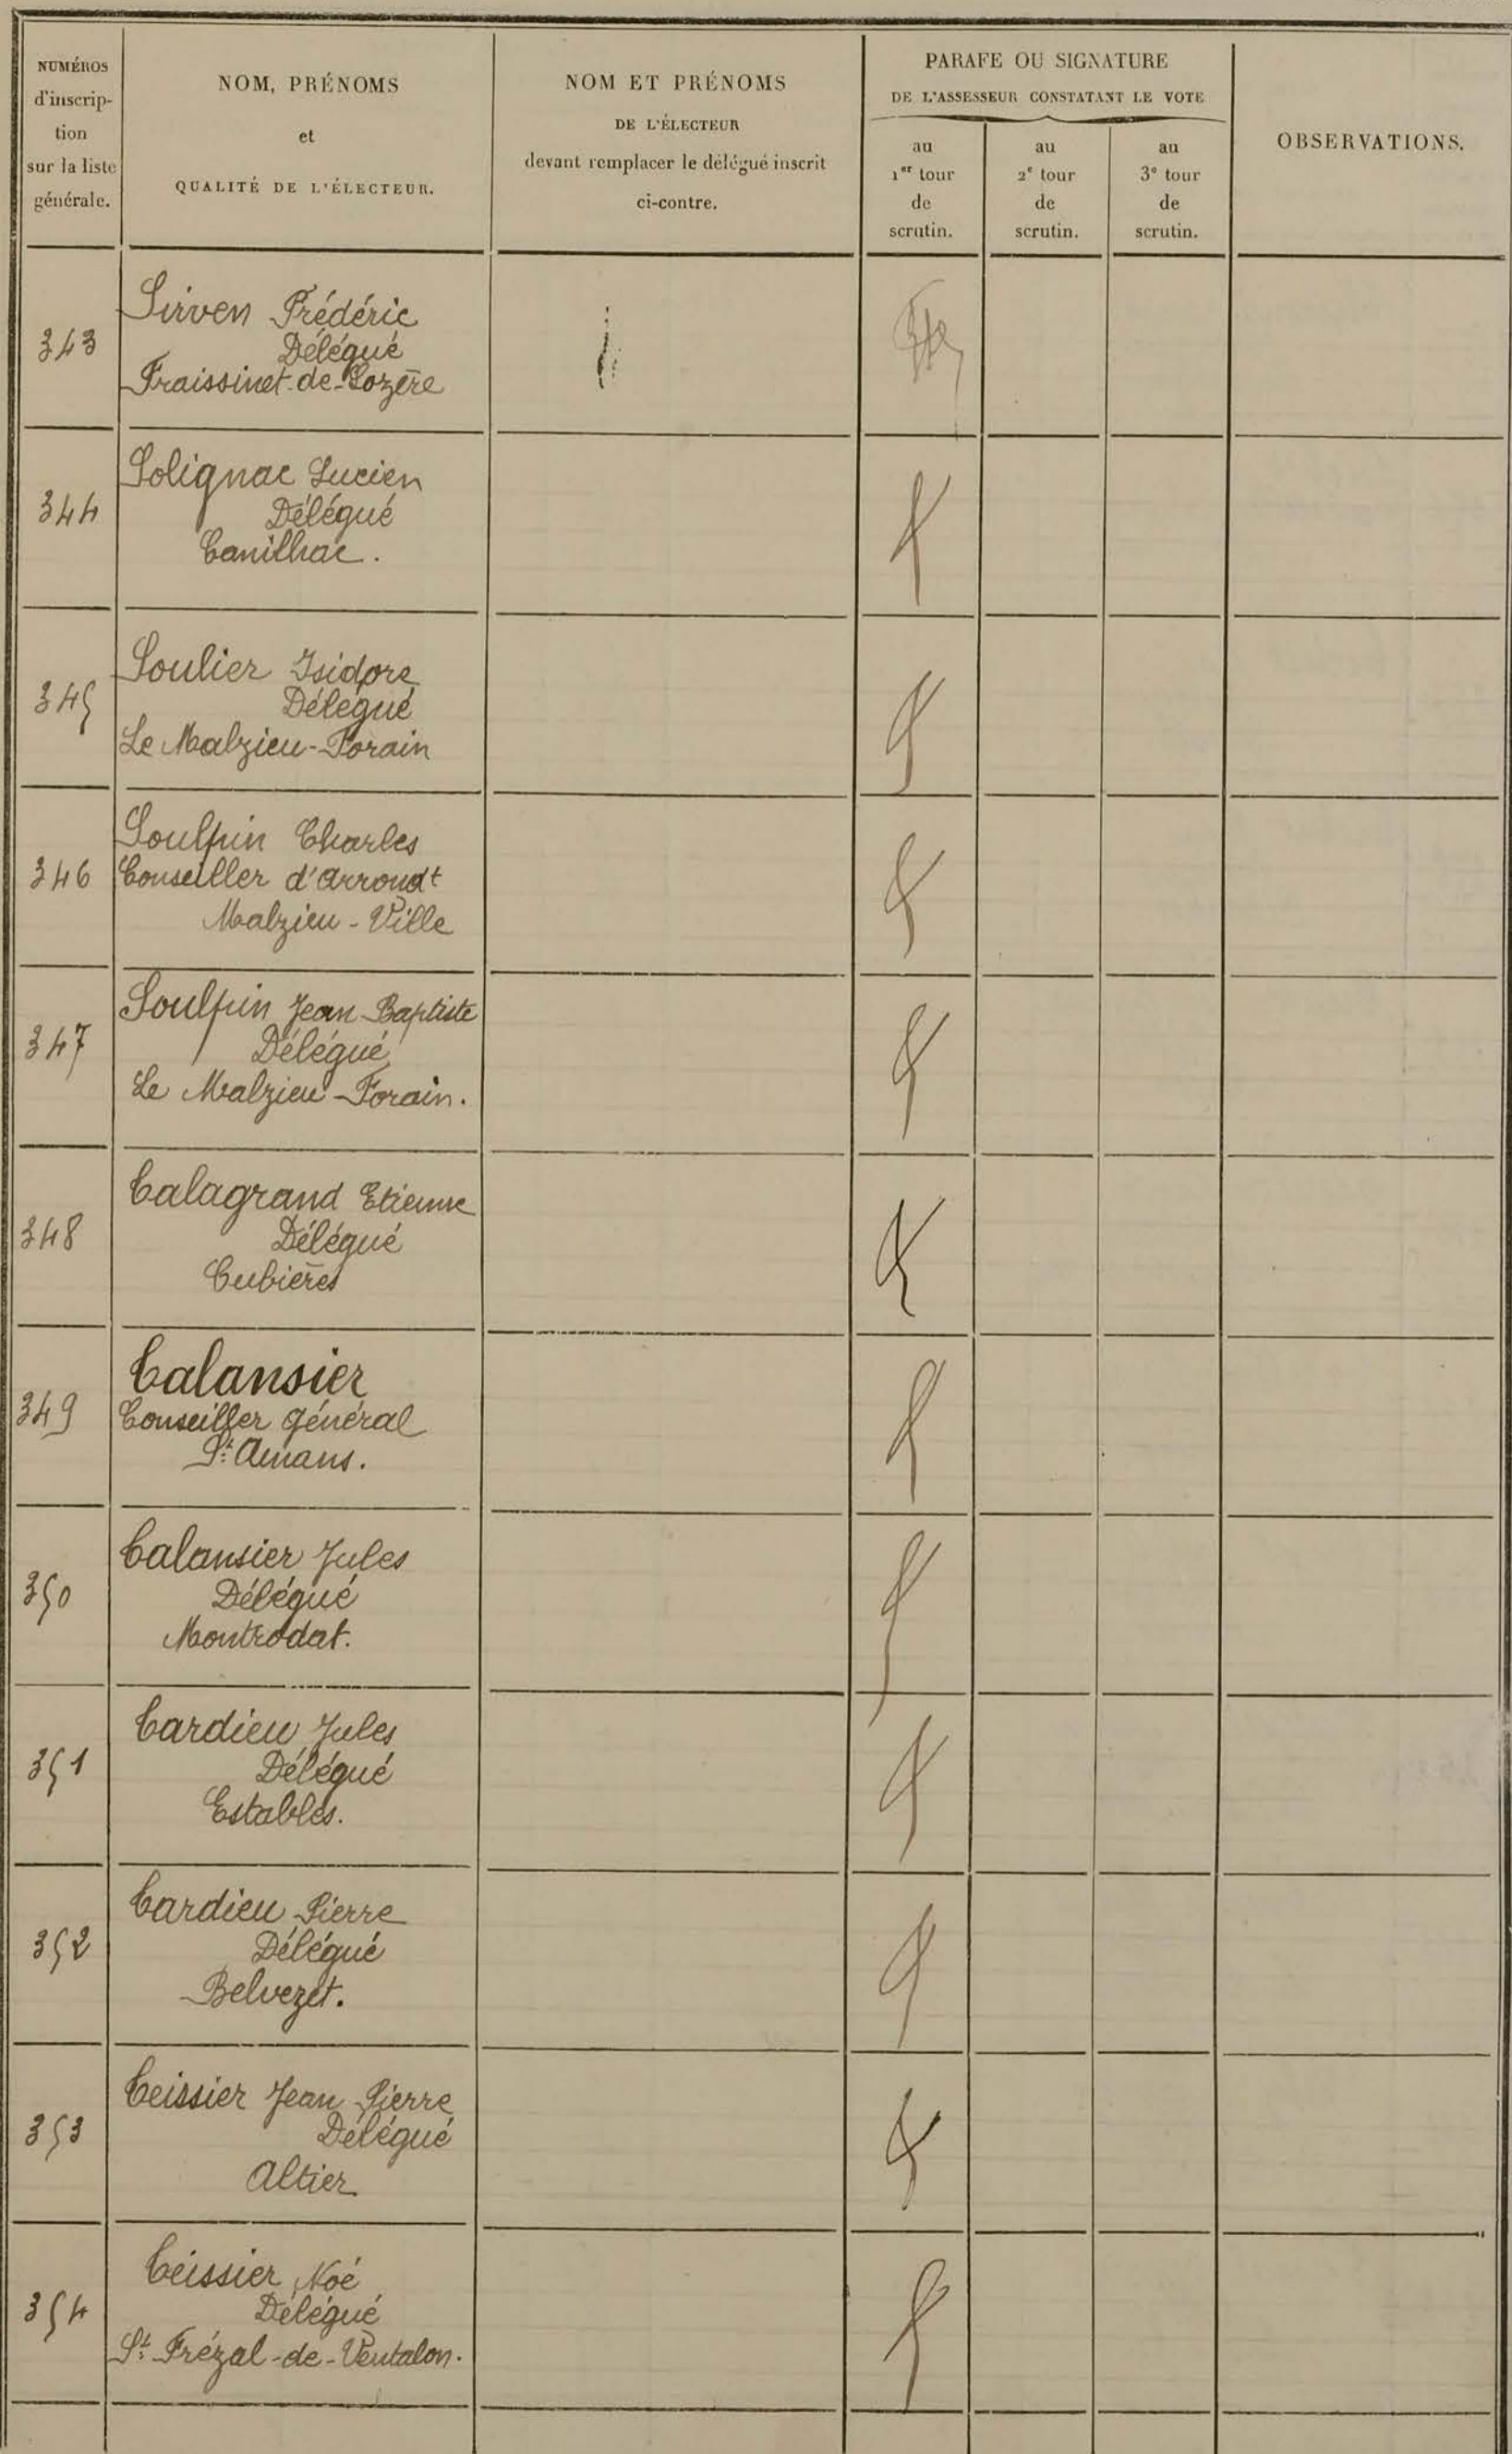 NUMÉROS
d'inscrip-
tion
sur la liste
générale.
NOM, PRÉNOMS
et
QUALITÉ DE L'ÉLECTEUR.
NOM ET PRÉNOMS
DE L'ÉLECTEUR
devant remplacer le délégué inscrit
ci-contre.
PARAFE OU SIGNATURE
DE L'ASSESSEUR CONSTATANT LE VOTE
au
1er tour
de
scrutin.
au
2e tour
de
scrutin.
au
3e tour
de
scrutin.
OBSERVATIONS.
343
Sirven Frédéric
Délégué
Fraissinet-de-Lozère
344
Solignac Lucien
Délégué
Canilhac.
345
Soulier Isidore
Délégué
Le Malzieu-Forain
346
Soulpin Charles
Conseiller d'arrondt
Malzieu-Ville
347
Soulpin Jean-Baptiste
Délégué
Le Malzieu-Forain.
348
Talagrand Etienne
Délégué
Cubières
349
Talansier
Conseiller général
St. Amans.
350
Talansier Jules
Délégué
Montrodat.
351
Tardieu Jules
Délégué
Estables.
352
Tardieu Pierre
Délégué
Belvezet.
353
Teissier Jean Pierre
Délégué
Altier
354
Teissier Noé
Délégué
St. Frézal-de-Ventalon.